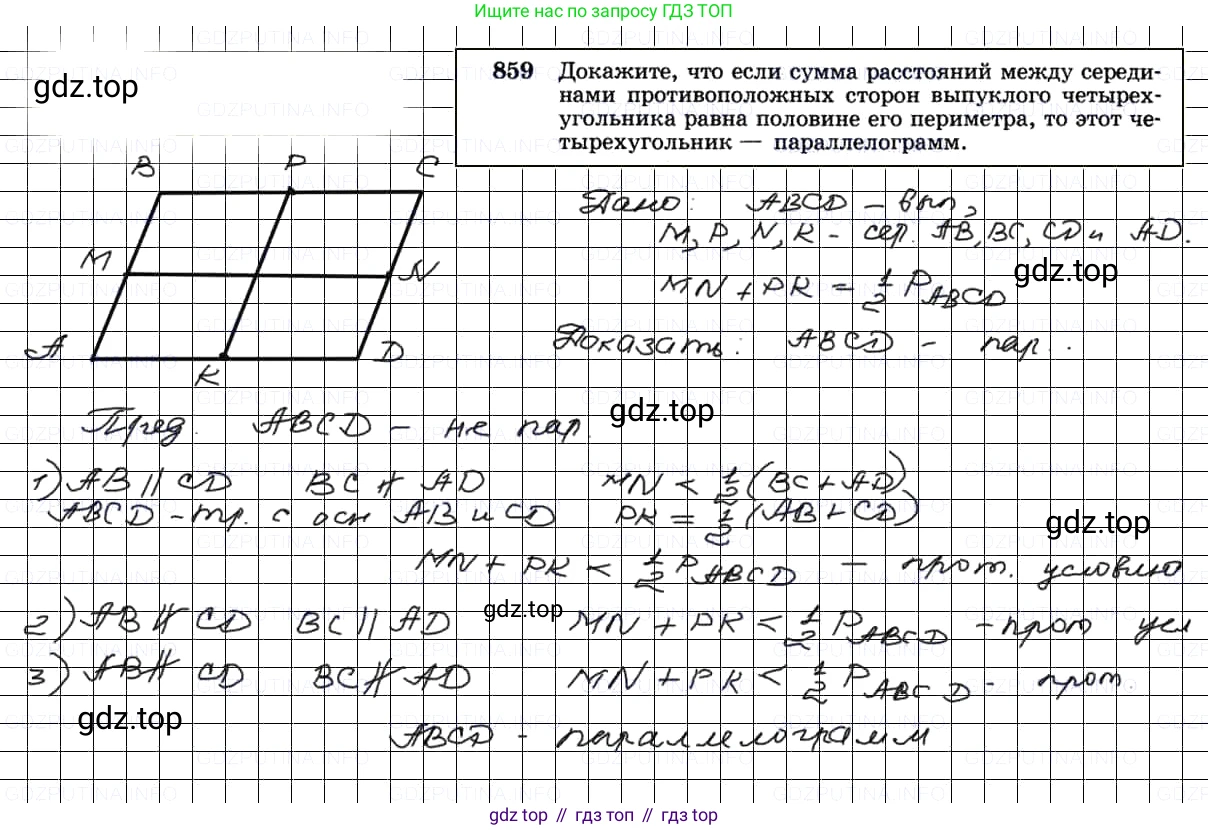 Ищите нас по запросу ГДЗ ТОП
859 Докажите, что если сумма расстояний между середи-
нами противоположных сторон выпуклого четырех-
угольника равна половине его периметра, то этот че-
тырехугольник — параллелограмм.
gdz.top
B P C
M N
A K D
Дано: ABCD – вып,
M, P, N, K – сер. AB, BC, CD и AD.
gdz.top
MN + PK = 1/2 P_ABCD
Доказать: ABCD – пар.
gdz.top
Пред. ABCD – не пар.
1) AB ∥ CD BC ∦ AD MN < 1/2 (BC + AD)
ABCD – тр. с осн AB и CD PK = 1/2 (AB + CD)
gdz.top
MN + PK < 1/2 P_ABCD – прот. условию
gdz.top
2) AB ∦ CD BC ∥ AD MN + PK < 1/2 P_ABCD – прот усл
3) AB ∦ CD BC ∦ AD MN + PK < 1/2 P_ABCD – прот.
gdz.top
ABCD – параллелограмм
gdz.top // гдз.топ // гдз.top